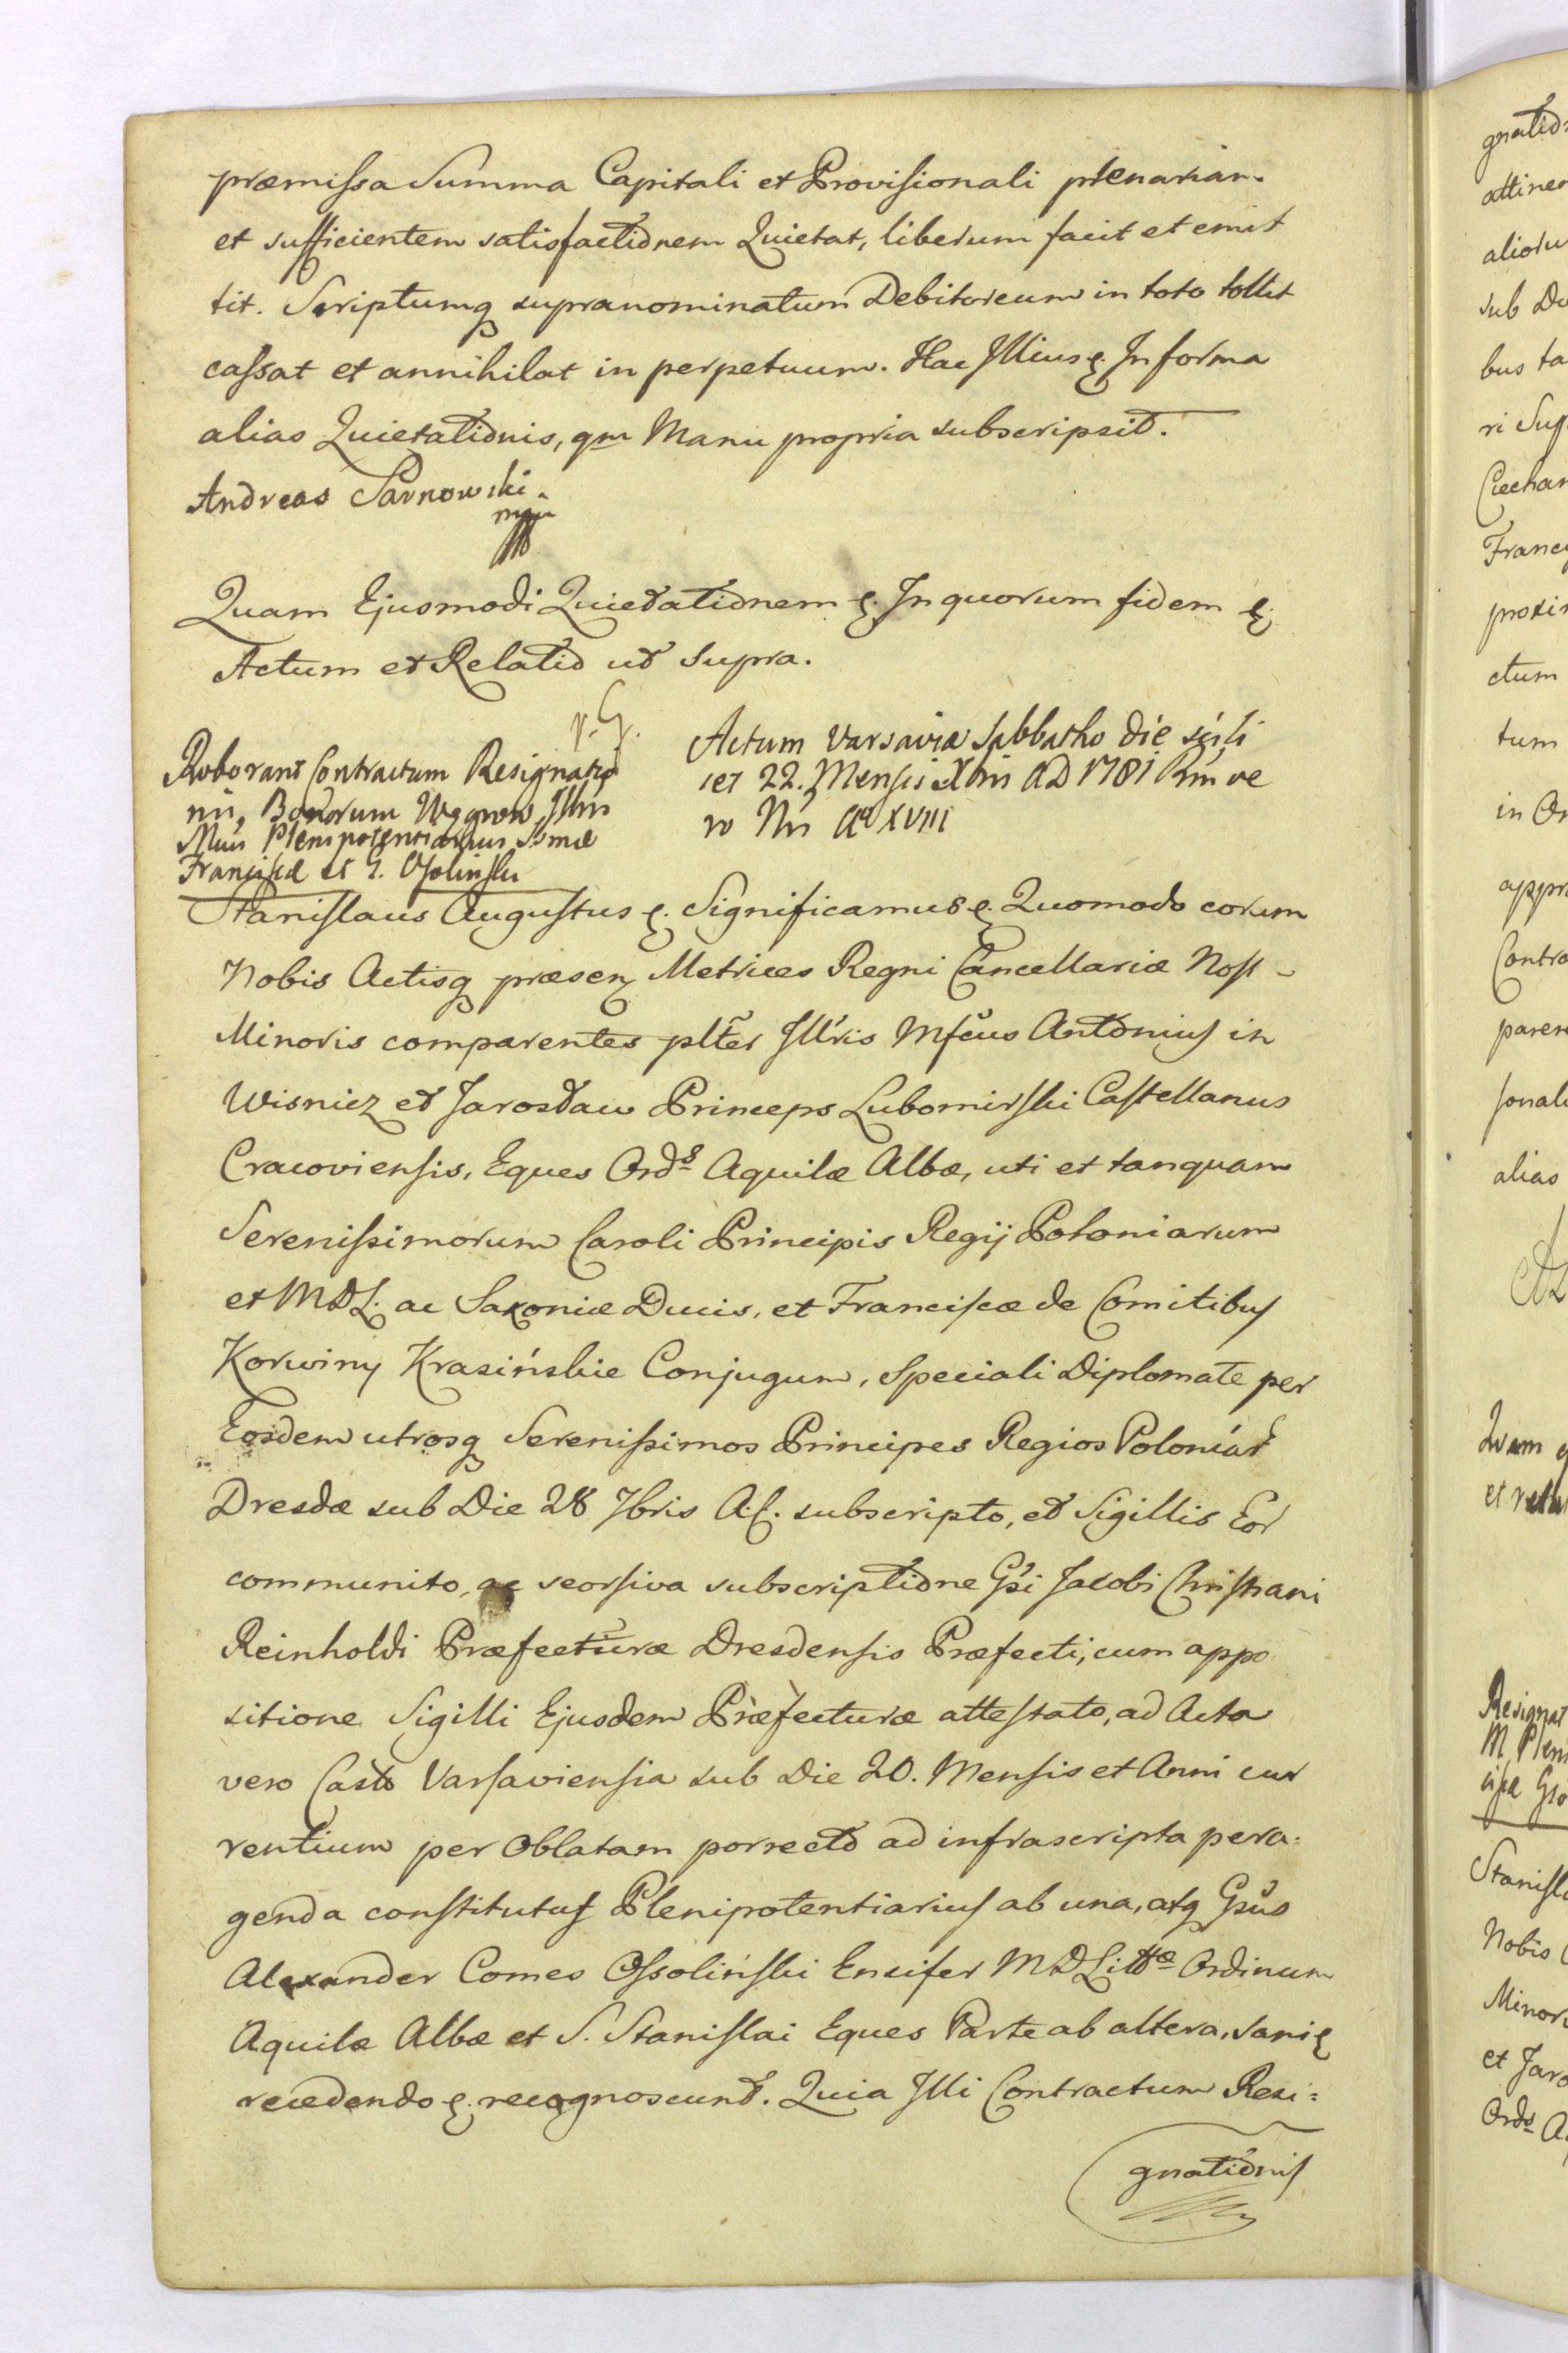 præmissa Summa Capitali et Provisionali plenariam
et sufficientem satisfactionem Quietat, liberum facit et emit
tit. Scriptumq supranominatum Debitoreum in toto tollit
cassat et annihilat in perpetuum. Hac Illius &. In forma
alias Quietationis, qm Manu propria subscripsit.
Andreas Sarnowski.
mpp
Quam Ejusmodi Quietationem &. In quorum fidem &.
Actum et Relatio ut supra.
Roborant Contractum Resignatio
nis, Bonorum Węgrow Illm
Mus Plenipotentiarius Ssmæ
Franciscæ et G. Ossolinski
Actum Varsaviæ Sabbatho die scili
cet 22. Mensis Xbris AD 1781 Rni ve
ro Nri Ao XVIII
Stanislaus Augustus &. Significamus &. Quomodo coram
Nobis Actisq præsen Metrices Regni Cancellariæ Nost
Minoris comparentes plter Illris Mfcus Antonius in
Wisnicz et Jarosław Princeps Lubomirski Castellanus
Cracoviensis, Eques Ords Aquilæ Albæ, uti et tanquam
Serenissimorum Caroli Principis Regij Poloniarum
et MDL. ac Saxoniæ Ducis, et Franciscæ de Comitibus
Korwiny Krasińskie Conjugum, speciali Diplomate per
Eosdem utrosq Serenissimos Principes Regios Poloniar
Dresdæ sub Die 28 7bris A.C. subscripto, et Sigillis Eor
communito, ac seorsiva subscriptione Gsi Jacobi Christiani
Reinholdi Præfecturæ Dresdensis Præfecti, cum appo
sitione Sigilli Ejusdem Præfecturæ attestato, ad Acta
vero Castr Varsaviensia sub Die 20. Mensis et Anni cur
rentium per Oblatam porrecto ad infrascripta pera=
genda constitutus Plenipotentiarius ab una, atq Gsus
Alexander Comes Ossoliński Ensifer MDLittæ Ordinum
Aquilæ Albæ et S. Stanislai Eques Parte ab altera, sani &
recedendo &. recognoscunt. Quia Illi Contractum Resi=
gnationis